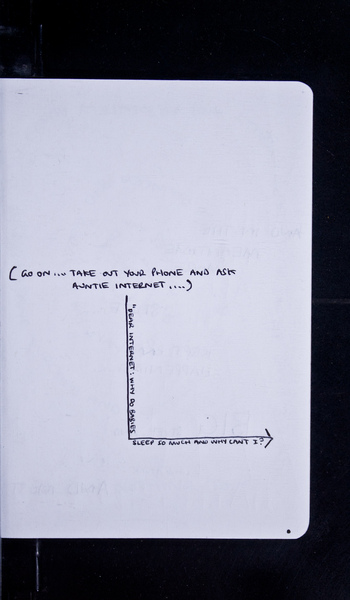 (GO ON... TAKE OUT YOUR PHONE AND ASK
AUNTIE INTERNET....)
"DEAR INTERNET: WHY DO BABIES
SLEEP SO MUCH AND WHY CAN'T I?